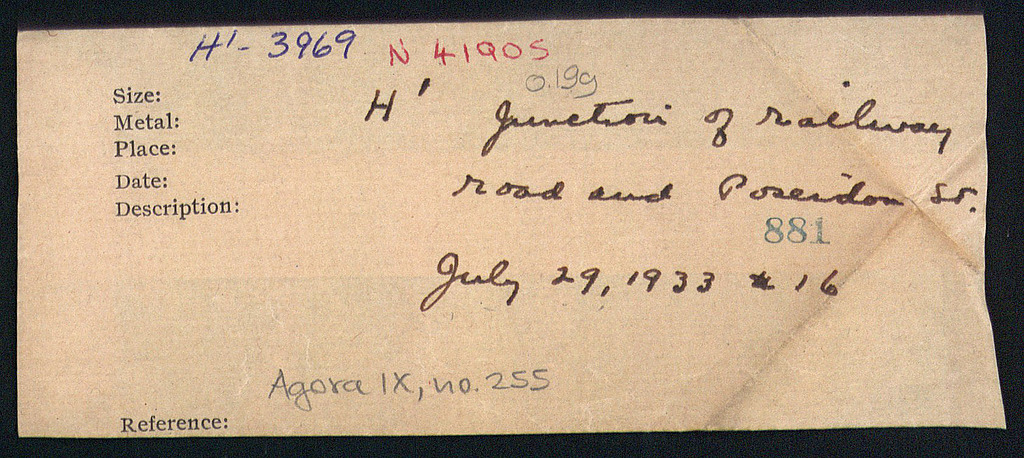 H'- 3969 N 41905
0.19g
Size:
Metal: H' Junction of railway
Place:
Date: road and Poseidon St.
Description:
881
July 29, 1933 # 16
Agora IX, no. 255
Reference: